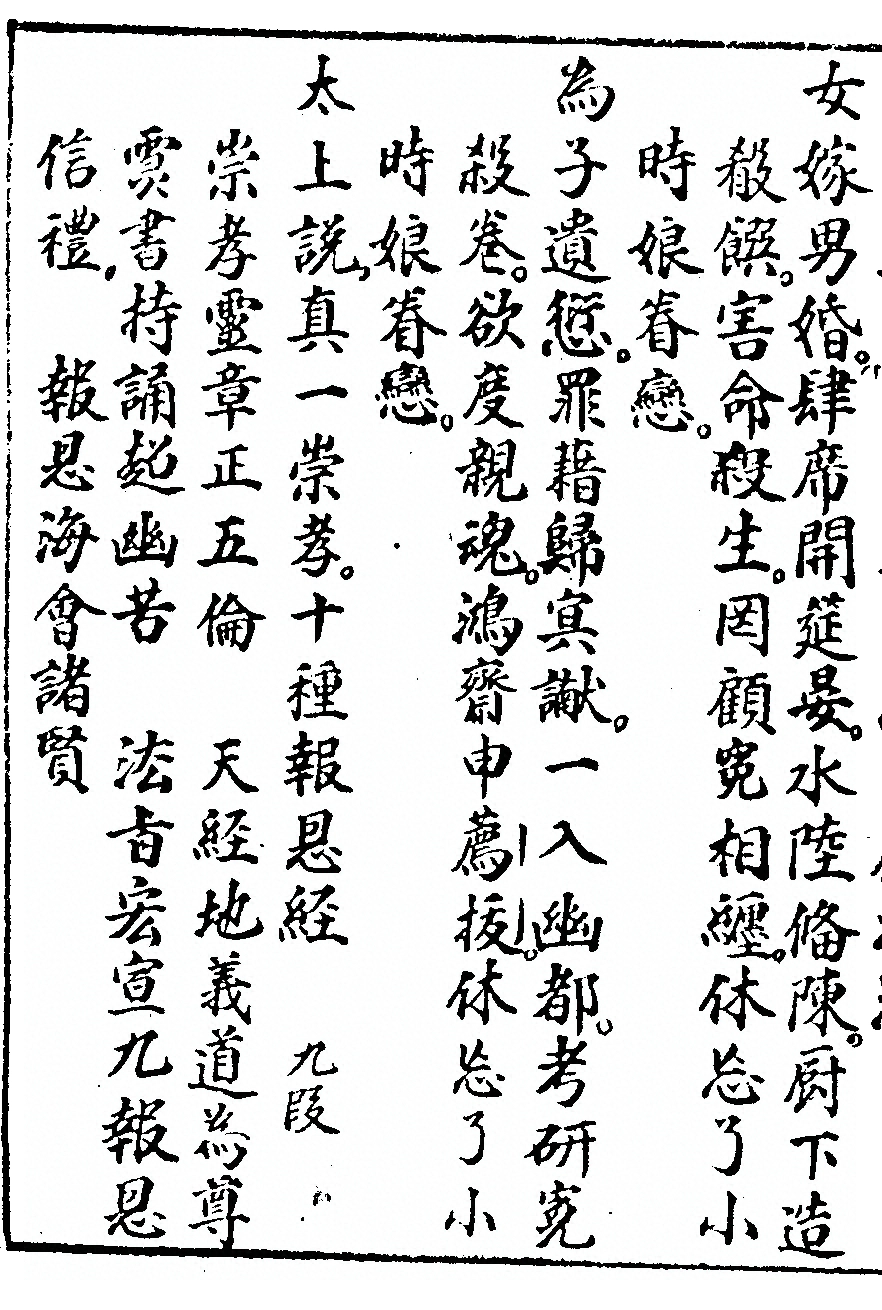 女嫁男婚。肆席開筵晏。水陸備陳。厨下造
殽饌。害命殺生。罔顧寃相纏。休忘了小
時娘眷戀。
為子遺愆。罪藉歸冥讞。一入幽都。考研寃
殺卷。欲度親魂。鴻齋申薦拔。休忘了小
時娘眷戀。
太上説，真一崇孝。十種報恩経　九段
崇孝靈章正五倫　天経地義道為尊
雲書持誦起幽苦　法旨宏宣九報恩
信禮，　報恩海會諸賢